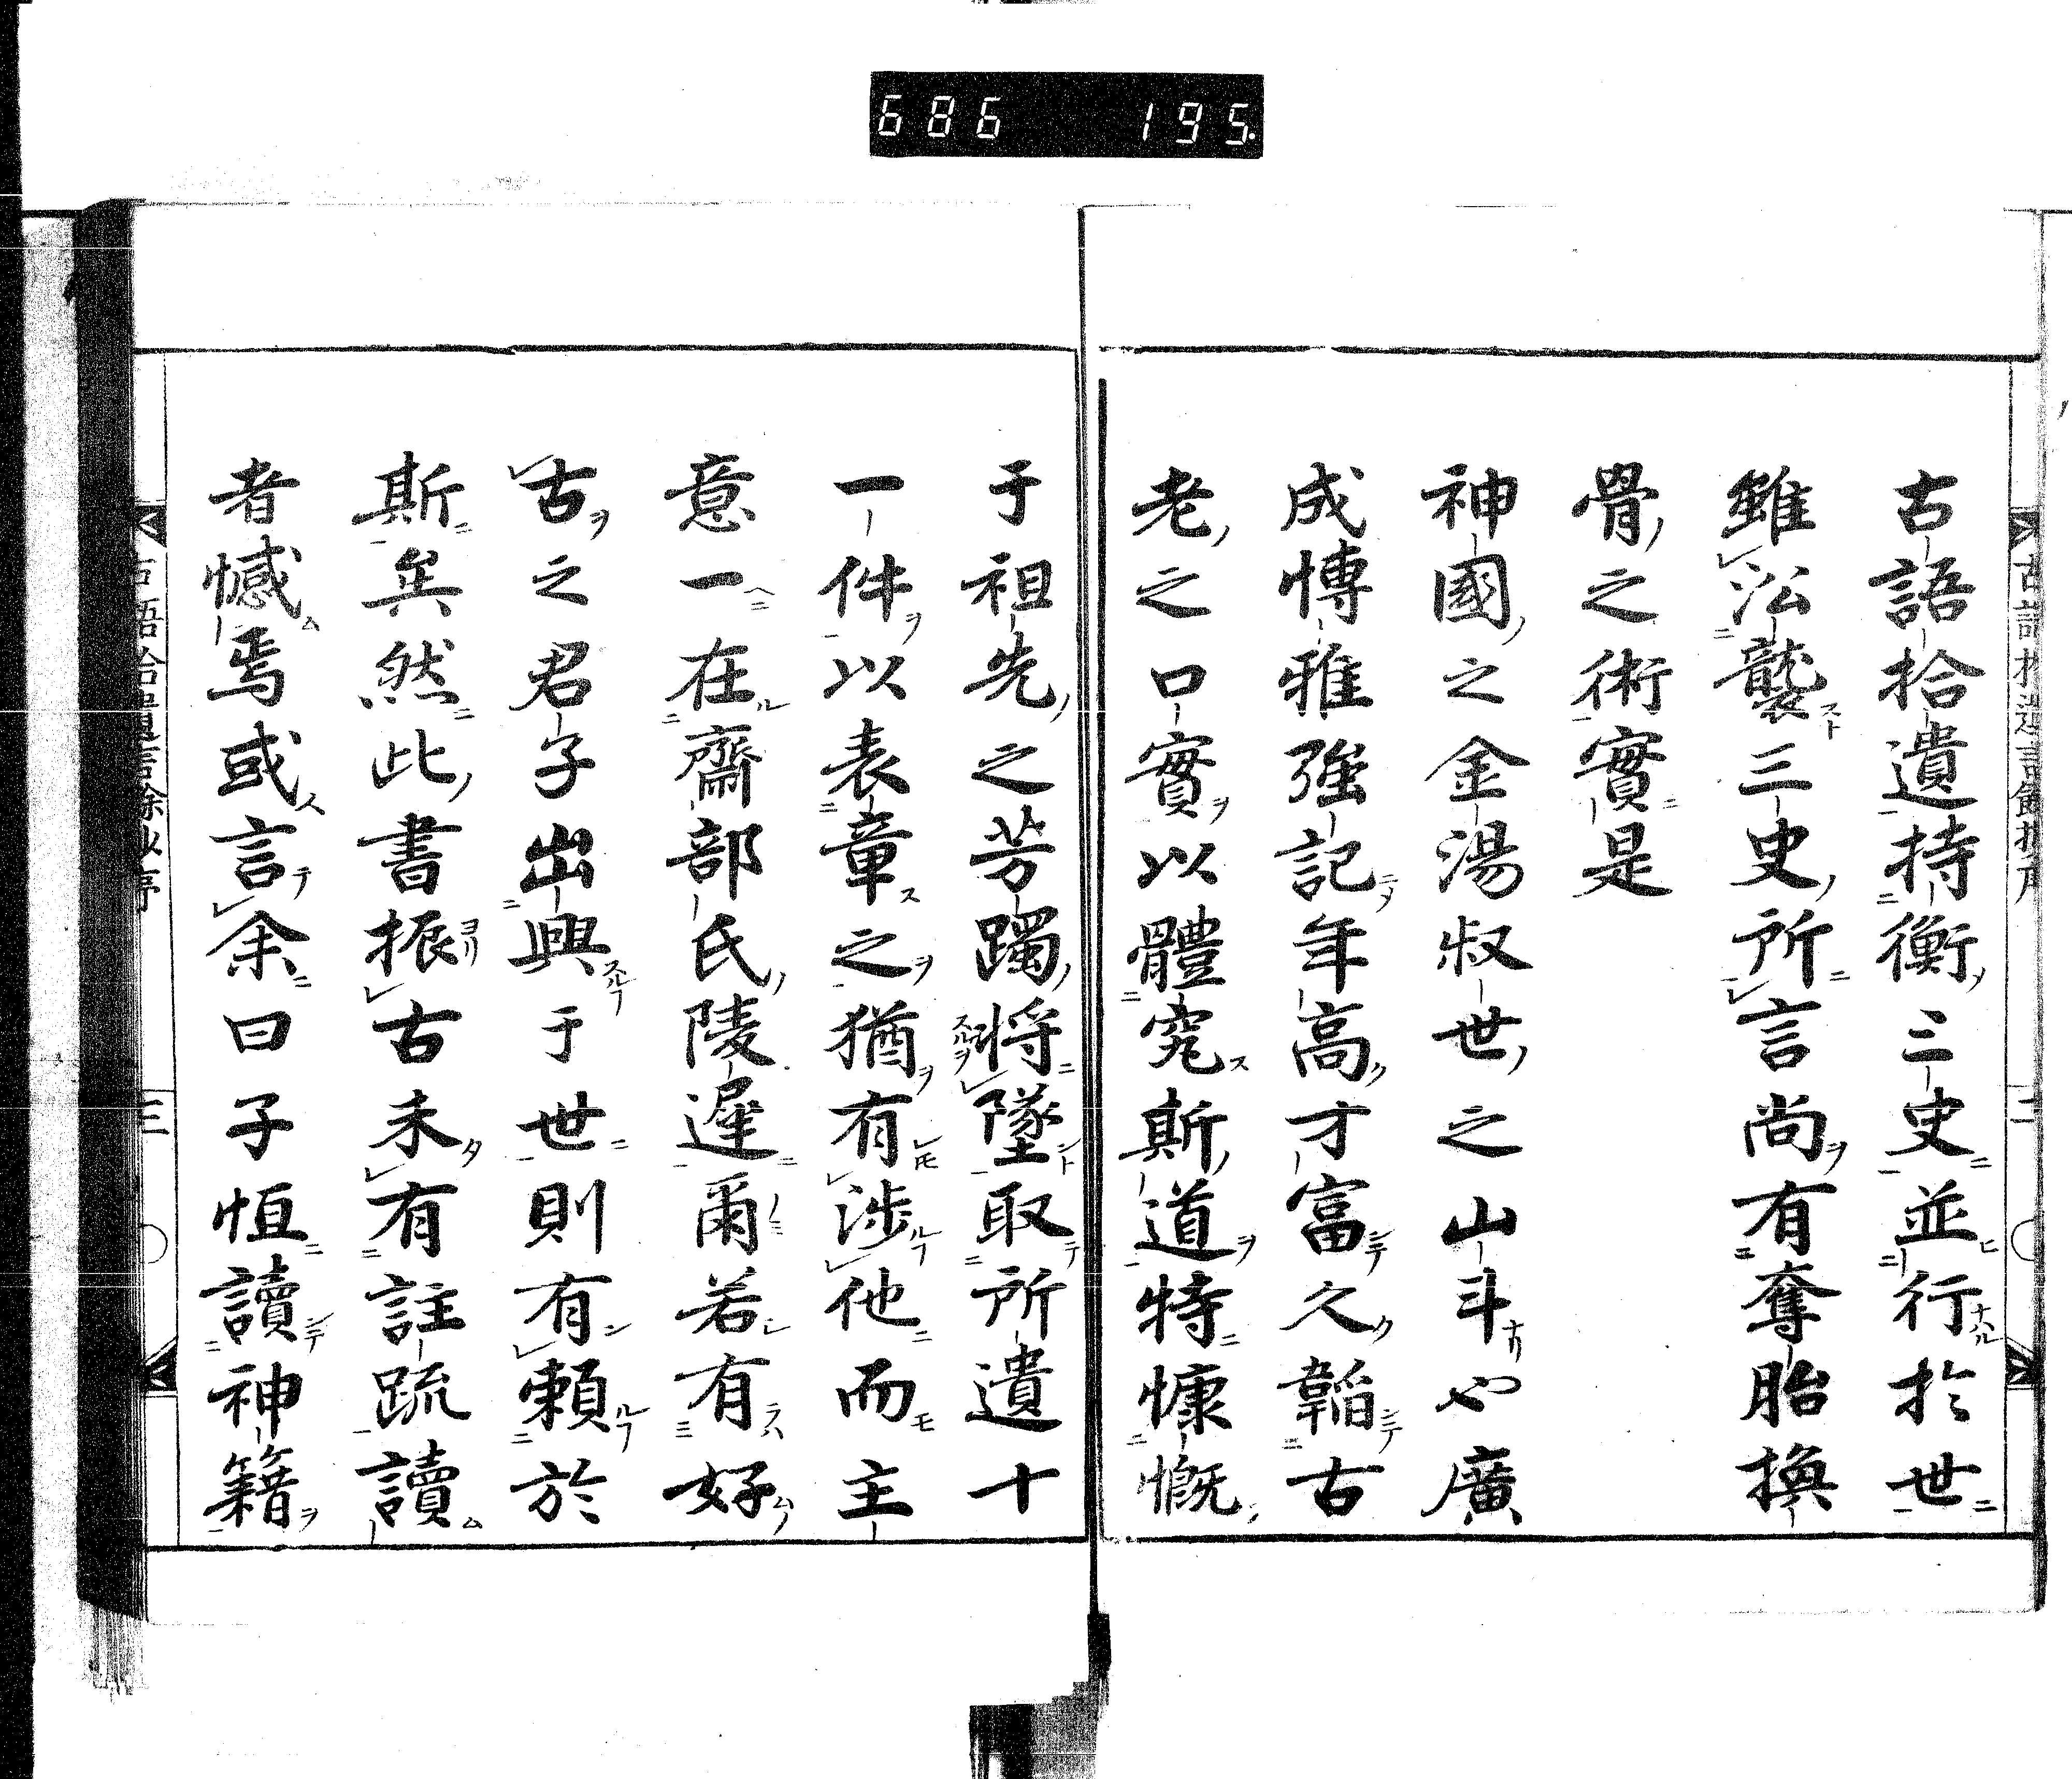 686 195.
古語拾遺持衡三史並行於世
雖沿襲三史所言尚有奪胎換
骨之術實是
神國之金湯叔世之山斗也廣
成博雅強記年高才富久韜古
老之口實以體究斯道特慷慨
于祖先之芳躅將墜取所遺十
一件以表章之猶有涉他而主
意一在齋部氏陵遲爾若有好
古之君子出興于世則有賴於
斯矣然此書振古未有註疏讀
者憾焉或言余曰子恒讀神籍